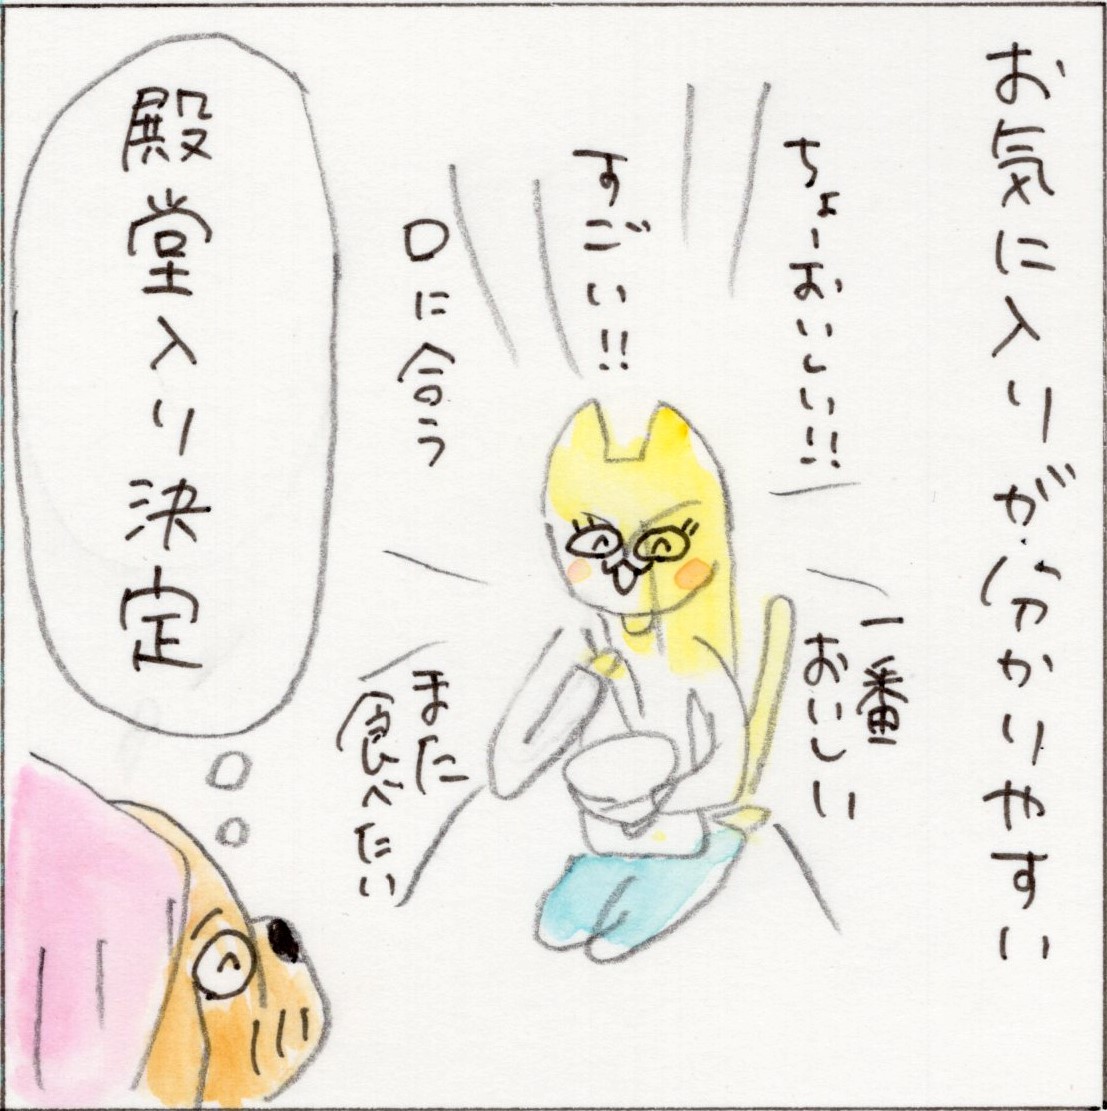 お気に入りが分かりやすい
ちょーおいしい!!
すごい!!
口に合う
一番
おいしい
また
食べたい
殿堂入り決定